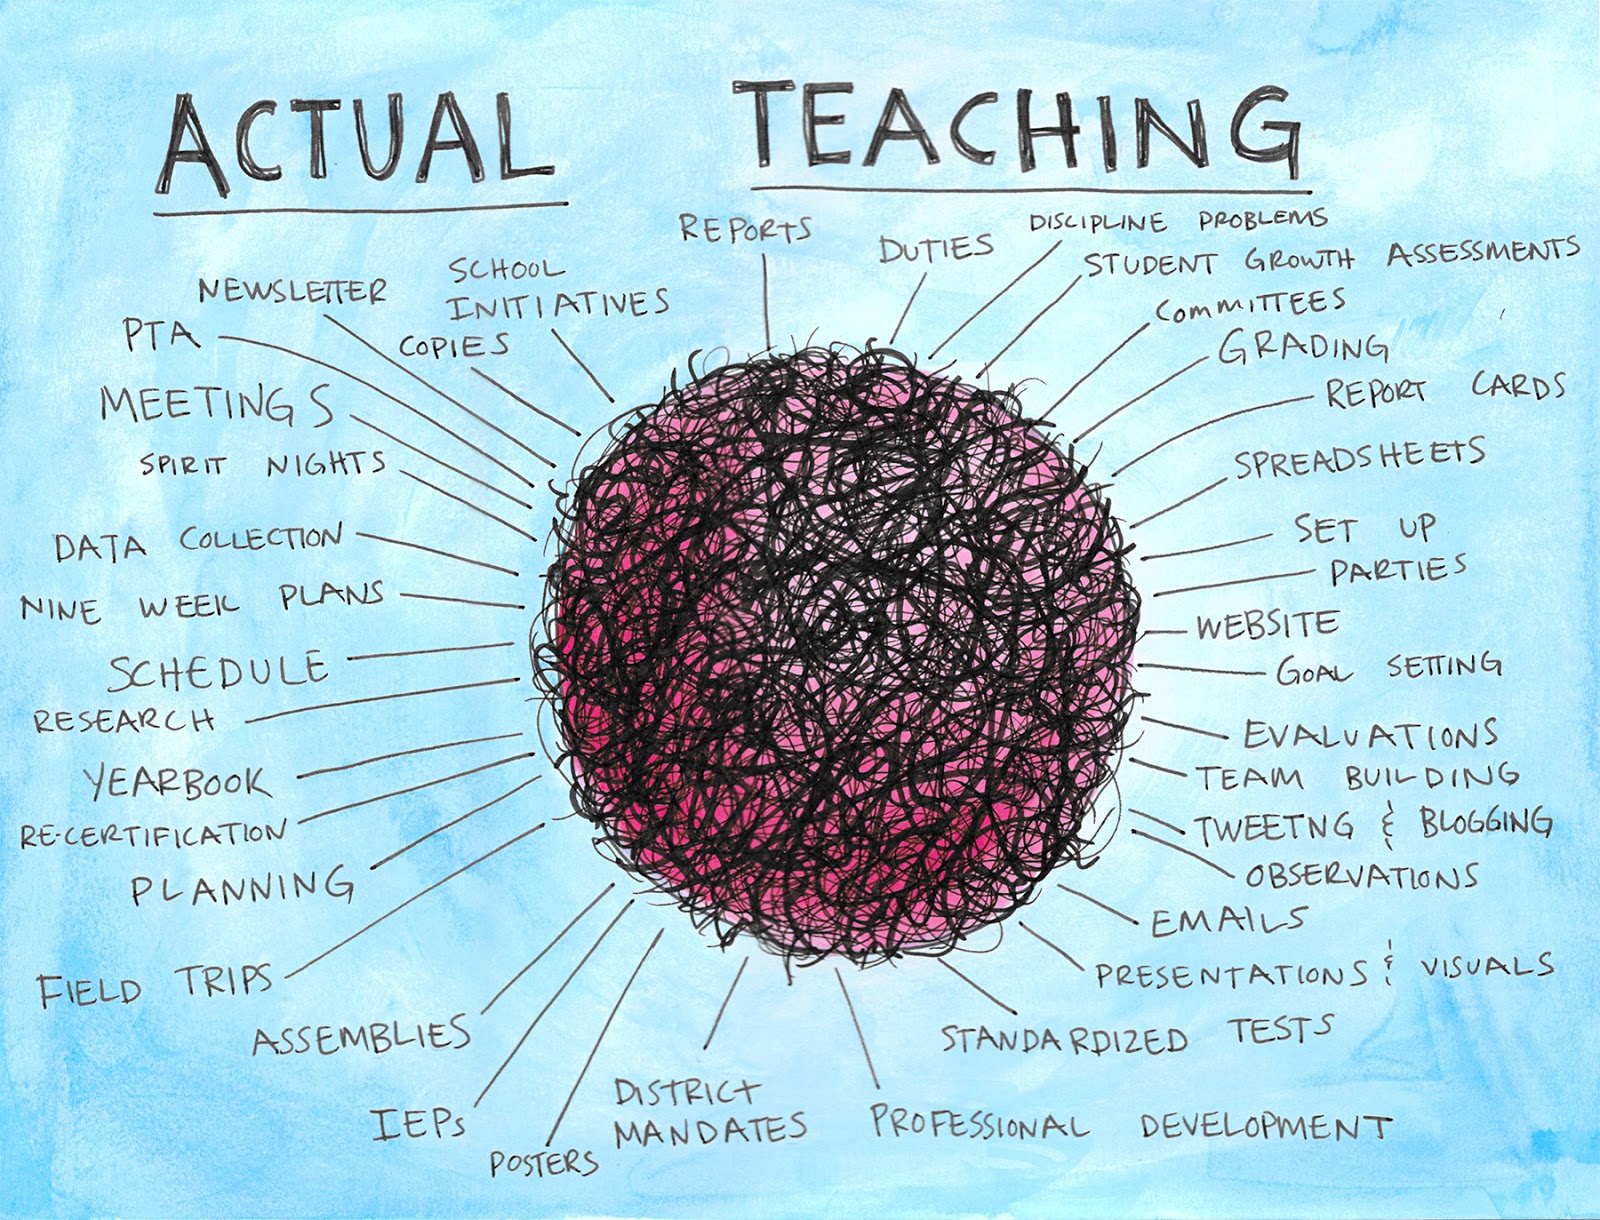 ACTUAL TEACHING
REPORTS
DUTIES
DISCIPLINE PROBLEMS
STUDENT GROWTH ASSESSMENTS
COMMITTEES
GRADING
REPORT CARDS
SPREADSHEETS
SET UP
PARTIES
WEBSITE
GOAL SETTING
EVALUATIONS
TEAM BUILDING
TWEETNG & BLOGGING
OBSERVATIONS
EMAILS
PRESENTATIONS & VISUALS
STANDARDIZED TESTS
PROFESSIONAL DEVELOPMENT
DISTRICT
MANDATES
POSTERS
IEPs
ASSEMBLIES
FIELD TRIPS
PLANNING
RE-CERTIFICATION
YEARBOOK
RESEARCH
SCHEDULE
NINE WEEK PLANS
DATA COLLECTION
SPIRIT NIGHTS
MEETINGS
PTA
NEWSLETTER
COPIES
SCHOOL
INITIATIVES